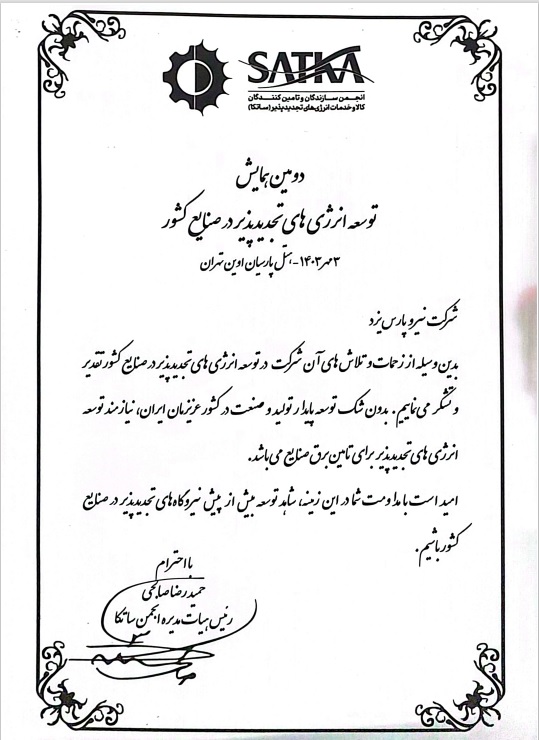 SATKA
انجمن سازندگان و تامین کنندگان
کالا و خدمات انرژی‌های تجدیدپذیر (ساتکا)
دومین همایش
توسعه انرژی های تجدیدپذیر در صنایع کشور
۳ مهر ۱۴۰۳- هتل پارسیان اوین تهران
شرکت نیرو پارس یزد
بدین وسیله از زحمات و تلاش های آن شرکت در توسعه انرژی های تجدیدپذیر در صنایع کشور تقدیر
و تشکر می نماییم. بدون شک توسعه پایدار تولید و صنعت در کشور عزیزمان ایران، نیازمند توسعه
انرژی های تجدیدپذیر برای تامین برق صنایع می باشد.
امید است با مداومت شما در این زمینه، شاهد توسعه بیش از پیش نیروگاه‌های تجدیدپذیر در صنایع
کشور باشیم.
با احترام
حمیدرضا صالحی
رئیس هیات مدیره انجمن ساتکا